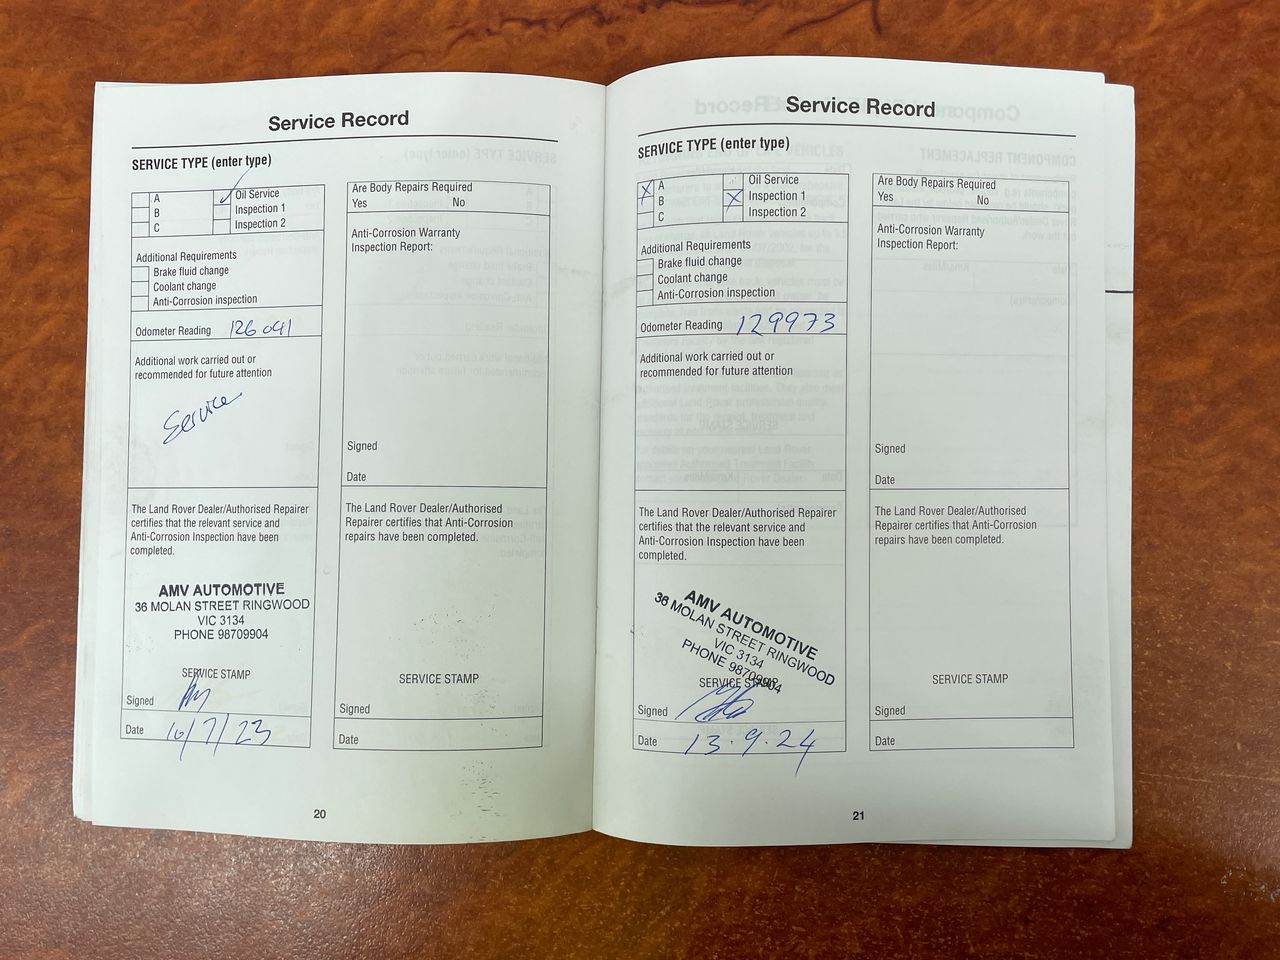 Service Record
SERVICE TYPE (enter type)
A
B
C
Oil Service
Inspection 1
Inspection 2
Additional Requirements
Brake fluid change
Coolant change
Anti-Corrosion inspection
Odometer Reading 126041
Additional work carried out or
recommended for future attention
Service
The Land Rover Dealer/Authorised Repairer
certifies that the relevant service and
Anti-Corrosion Inspection have been
completed.
AMV AUTOMOTIVE
36 MOLAN STREET RINGWOOD
VIC 3134
PHONE 98709904
SERVICE STAMP
Signed
Date 10/7/23
Are Body Repairs Required
Yes No
Anti-Corrosion Warranty
Inspection Report:
Signed
Date
The Land Rover Dealer/Authorised
Repairer certifies that Anti-Corrosion
repairs have been completed.
SERVICE STAMP
Signed
Date
20
Service Record
SERVICE TYPE (enter type)
A
B
C
Oil Service
Inspection 1
Inspection 2
Additional Requirements
Brake fluid change
Coolant change
Anti-Corrosion inspection
Odometer Reading 129973
Additional work carried out or
recommended for future attention
The Land Rover Dealer/Authorised Repairer
certifies that the relevant service and
Anti-Corrosion Inspection have been
completed.
AMV AUTOMOTIVE
36 MOLAN STREET RINGWOOD
VIC 3134
PHONE 98709904
SERVICE STAMP
Signed
Date 13.9.24
Are Body Repairs Required
Yes No
Anti-Corrosion Warranty
Inspection Report:
Signed
Date
The Land Rover Dealer/Authorised
Repairer certifies that Anti-Corrosion
repairs have been completed.
SERVICE STAMP
Signed
Date
21